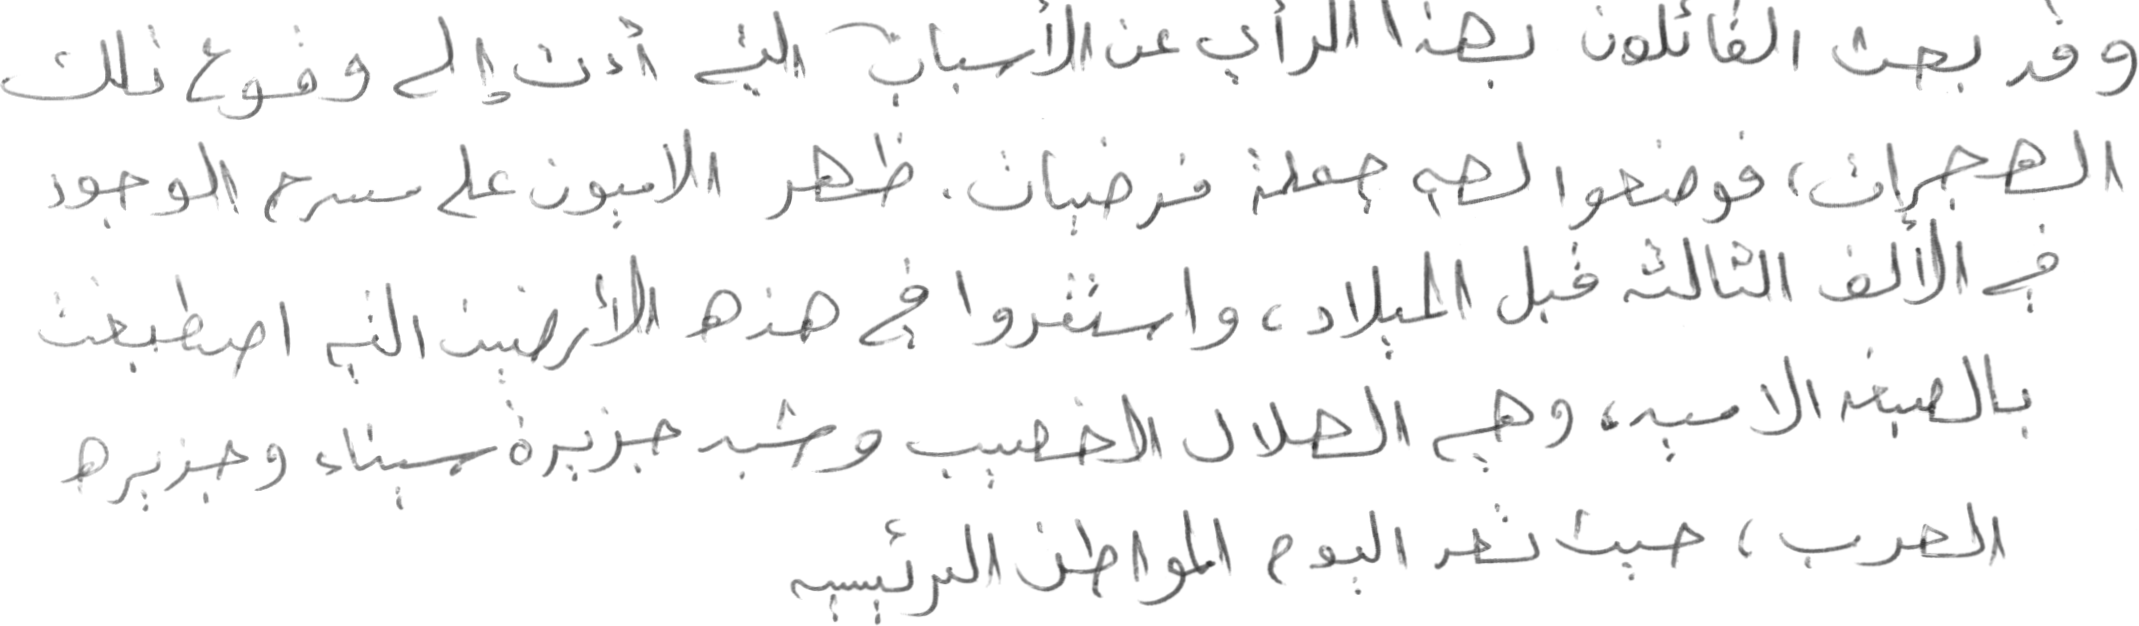 وقد بحث القائلون بهذا الرأي عن الأسباب التي أدت إلى وقوع تلك
الهجرات، فوضعوا لهم جملة فرضيات. ظهر الاميون على مسرح الوجود
في الألف الثالثة قبل الميلاد، واستقروا في هذه الأرضين التي اصطبغت
بالصبغه الاميه، وهي الهلال الخصيب وشبه جزيرة سيناء وجزيره
العرب، حيث تعد اليوم المواطن الرئيسيه